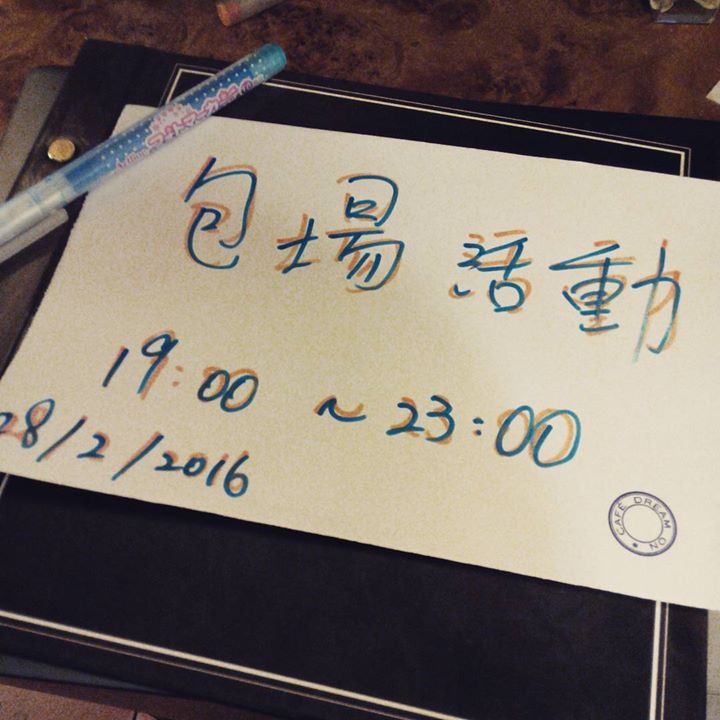 包場 活動
19:00 ~ 23:00
28/2/2016
CAFÉ DREAM ON